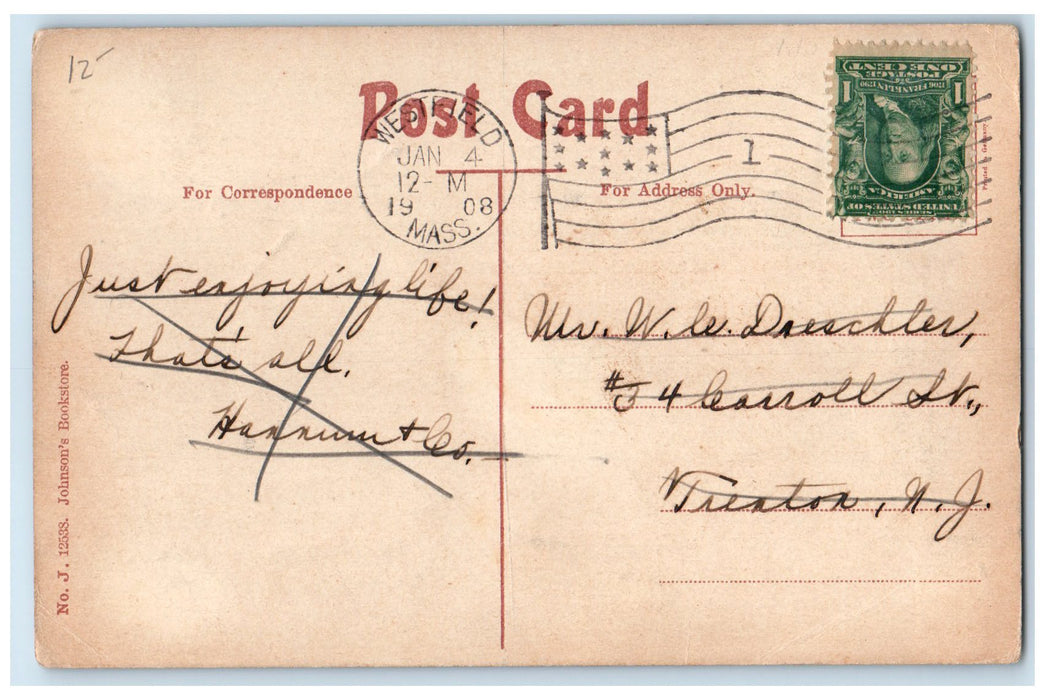 12-
Post Card
WESTFIELD
JAN 4
12-M
1908
MASS.
1
POSTAGE
ONE CENT
1706 FRANKLIN 1790
1 1
SERIES 1902
UNITED STATES OF
AMERICA
Printed in Germany
For Correspondence
For Address Only.
Just enjoying life!
That's all.
Hannum & Co.
Mr. W. C. Dreschler,
#34 Carroll St.,
Trenton, N. J.
No. J. 12538. Johnson's Bookstore.